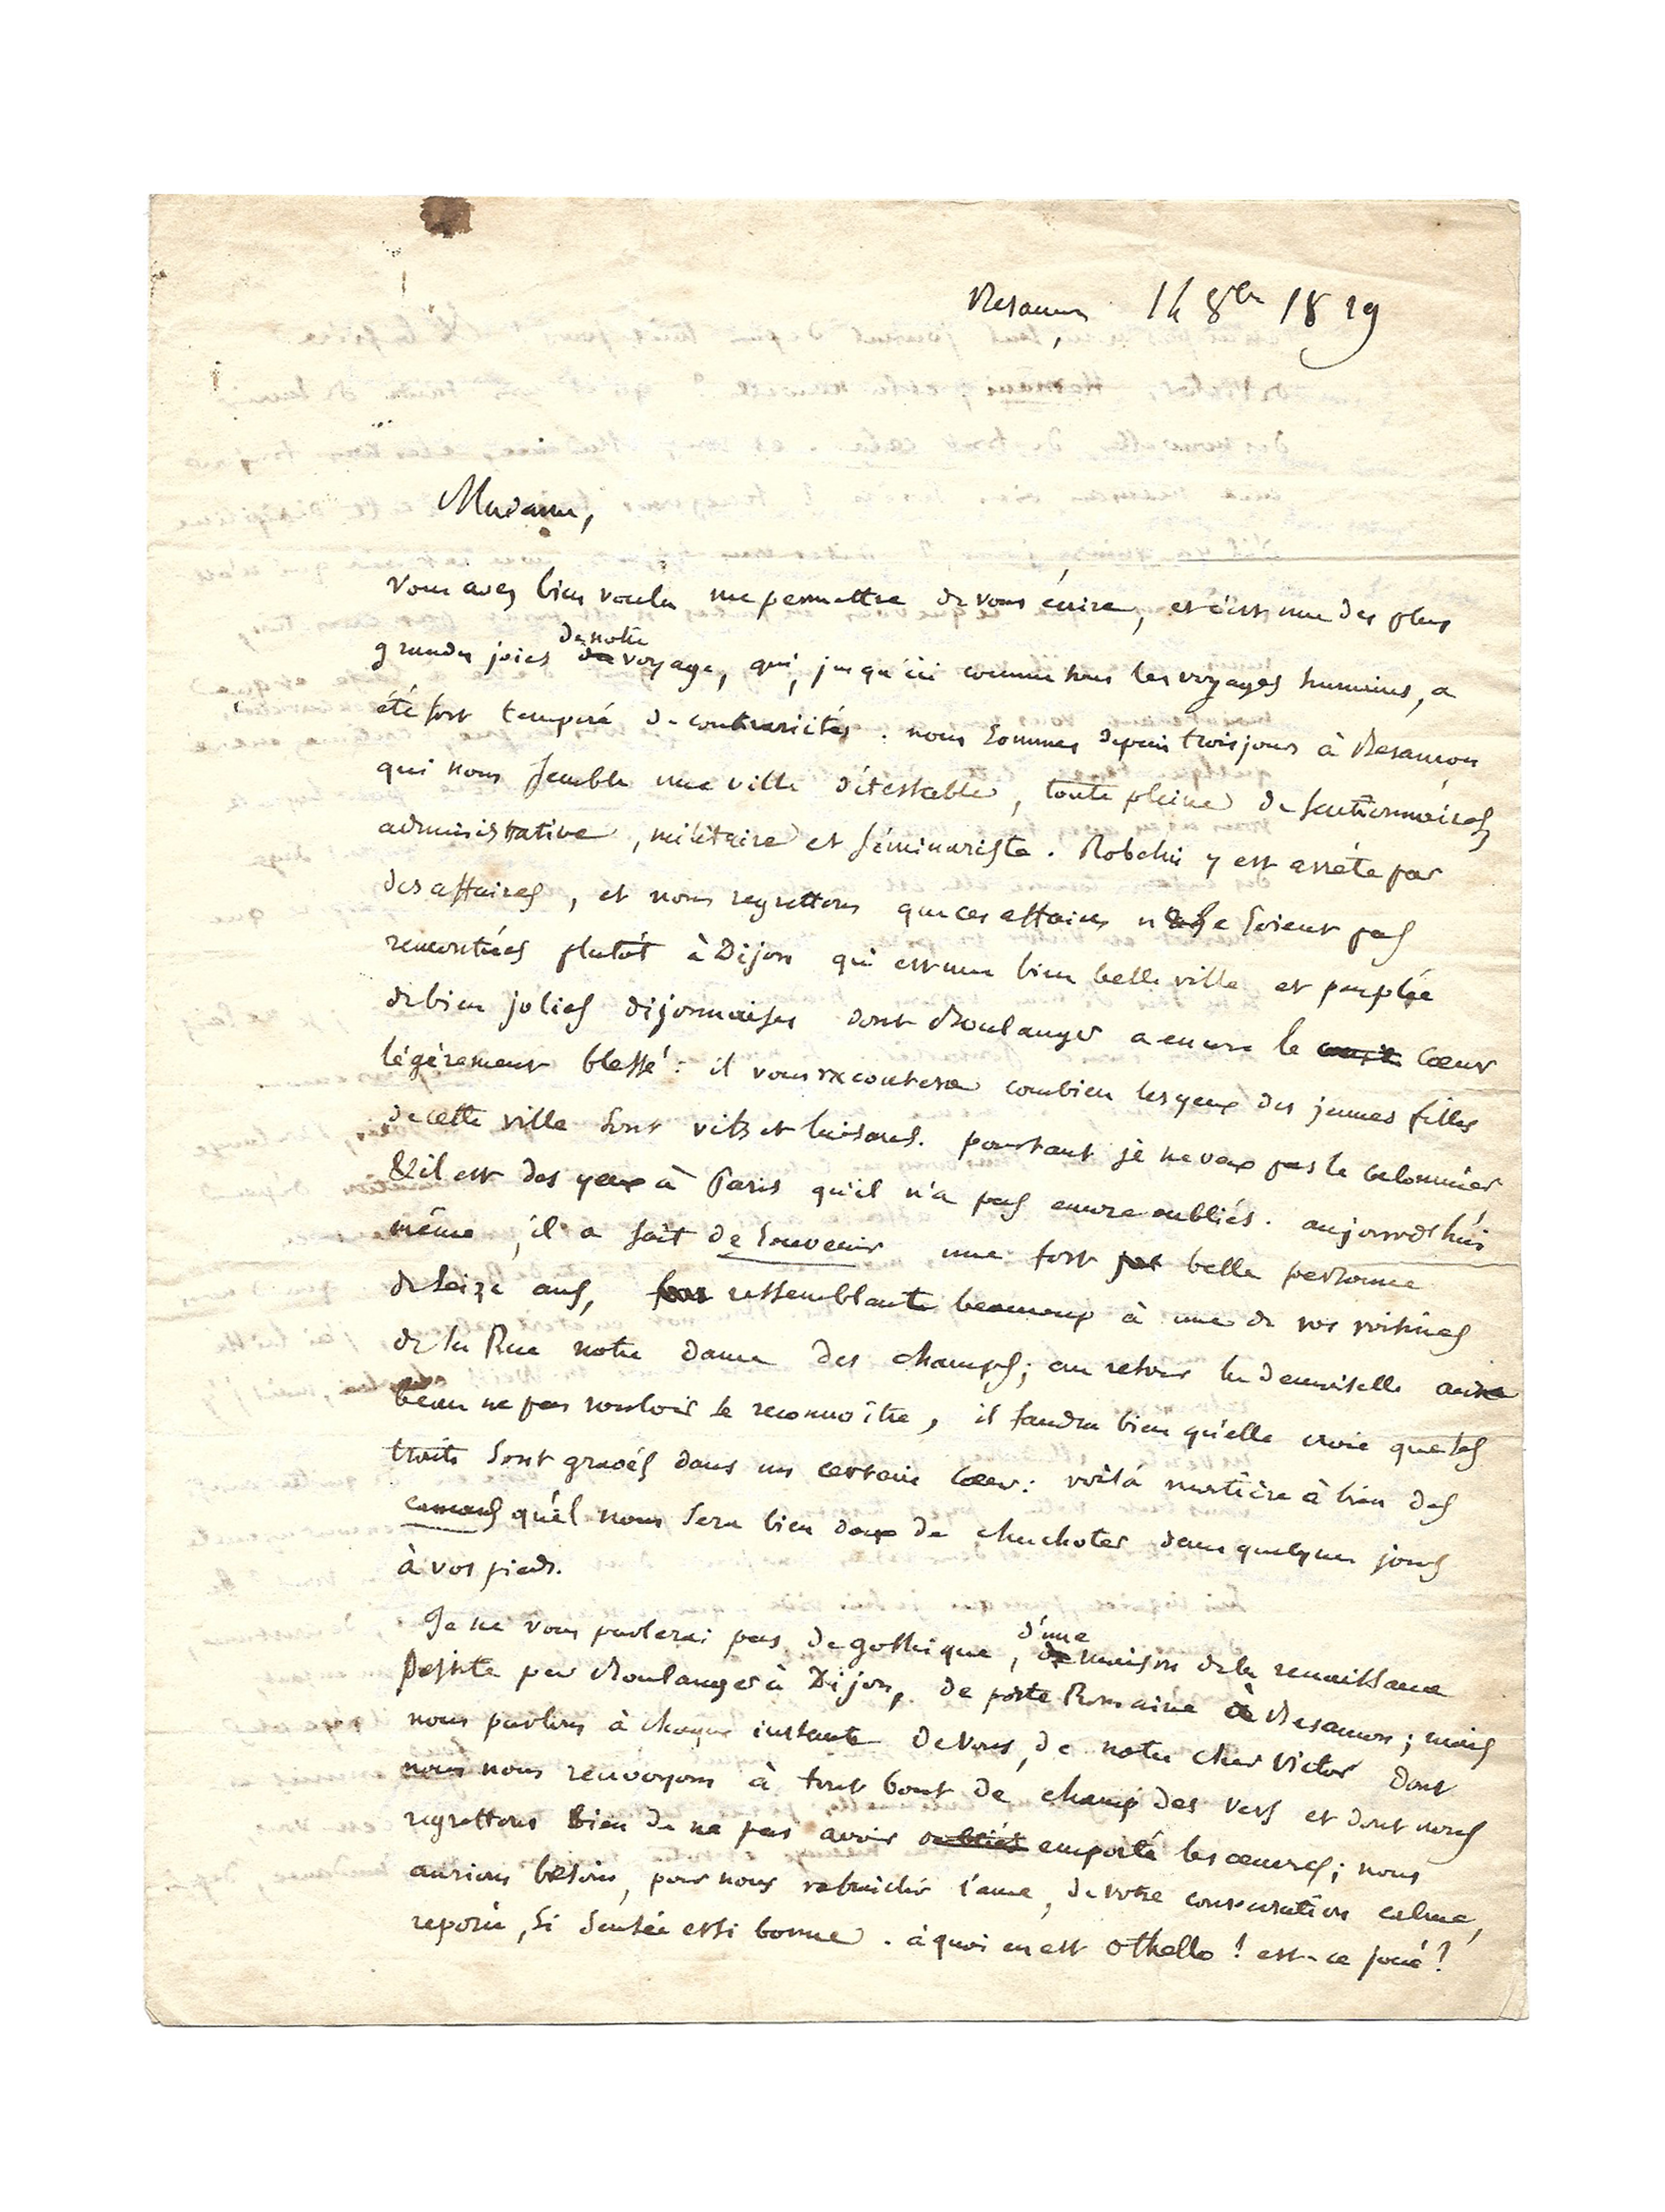 Besançon, 14 8bre 1829
Madame,
Vous avez bien voulu me permettre de vous écrire, et c'est une des plus
grandes joies de notre voyage, qui, jusqu'ici comme tous les voyages humains, a
été fort tempéré de contrariétés. nous sommes depuis trois jours à Besançon
qui nous semble une ville détestable, toute pleine de fonctionnaires,
administrative, militaire et séminariste. Robelin y est arrêté par
des affaires, et nous regrettons que ces affaires ne se soient pas
rencontrées plutôt à Dijon qui est une bien belle ville et peuplée
de bien jolies dijonnaises dont Boulanger a encore le cœur
légèrement blessé: il vous racontera combien les yeux des jeunes filles
de cette ville sont vifs et luisans. pourtant je ne veux pas le calomnier
& il est des yeux à Paris qu'il n'a pas encore oubliés. aujourd'hui
même, il a fait de souvenir une fort belle personne
de seize ans, ressemblante beaucoup à une de vos voisines
de la Rue notre dame des champs; au retour la demoiselle aura
beau ne pas vouloir se reconnoître, il faudra bien qu'elle croie que ses
traits sont gravés dans un certain cœur: voilà matière à bien des
cancans qu'il nous sera bien doux de chuchoter dans quelques jours
à vos pieds.
Je ne vous parlerai pas de gothique, d'une maison de la renaissance
dessinée par Boulanger à Dijon, de porte Romaine à Besançon; mais
nous parlons à chaque instant de vous, de notre cher Victor dont
nous nous renvoyons à tout bout de champ des vers et dont nous
regrettons bien de ne pas avoir emporté les œuvres; nous
aurions besoin, pour nous rafraîchir l'ame, de votre conversation calme,
reposée, si sensée et si bonne. à quoi en est Othello! est-ce joué?